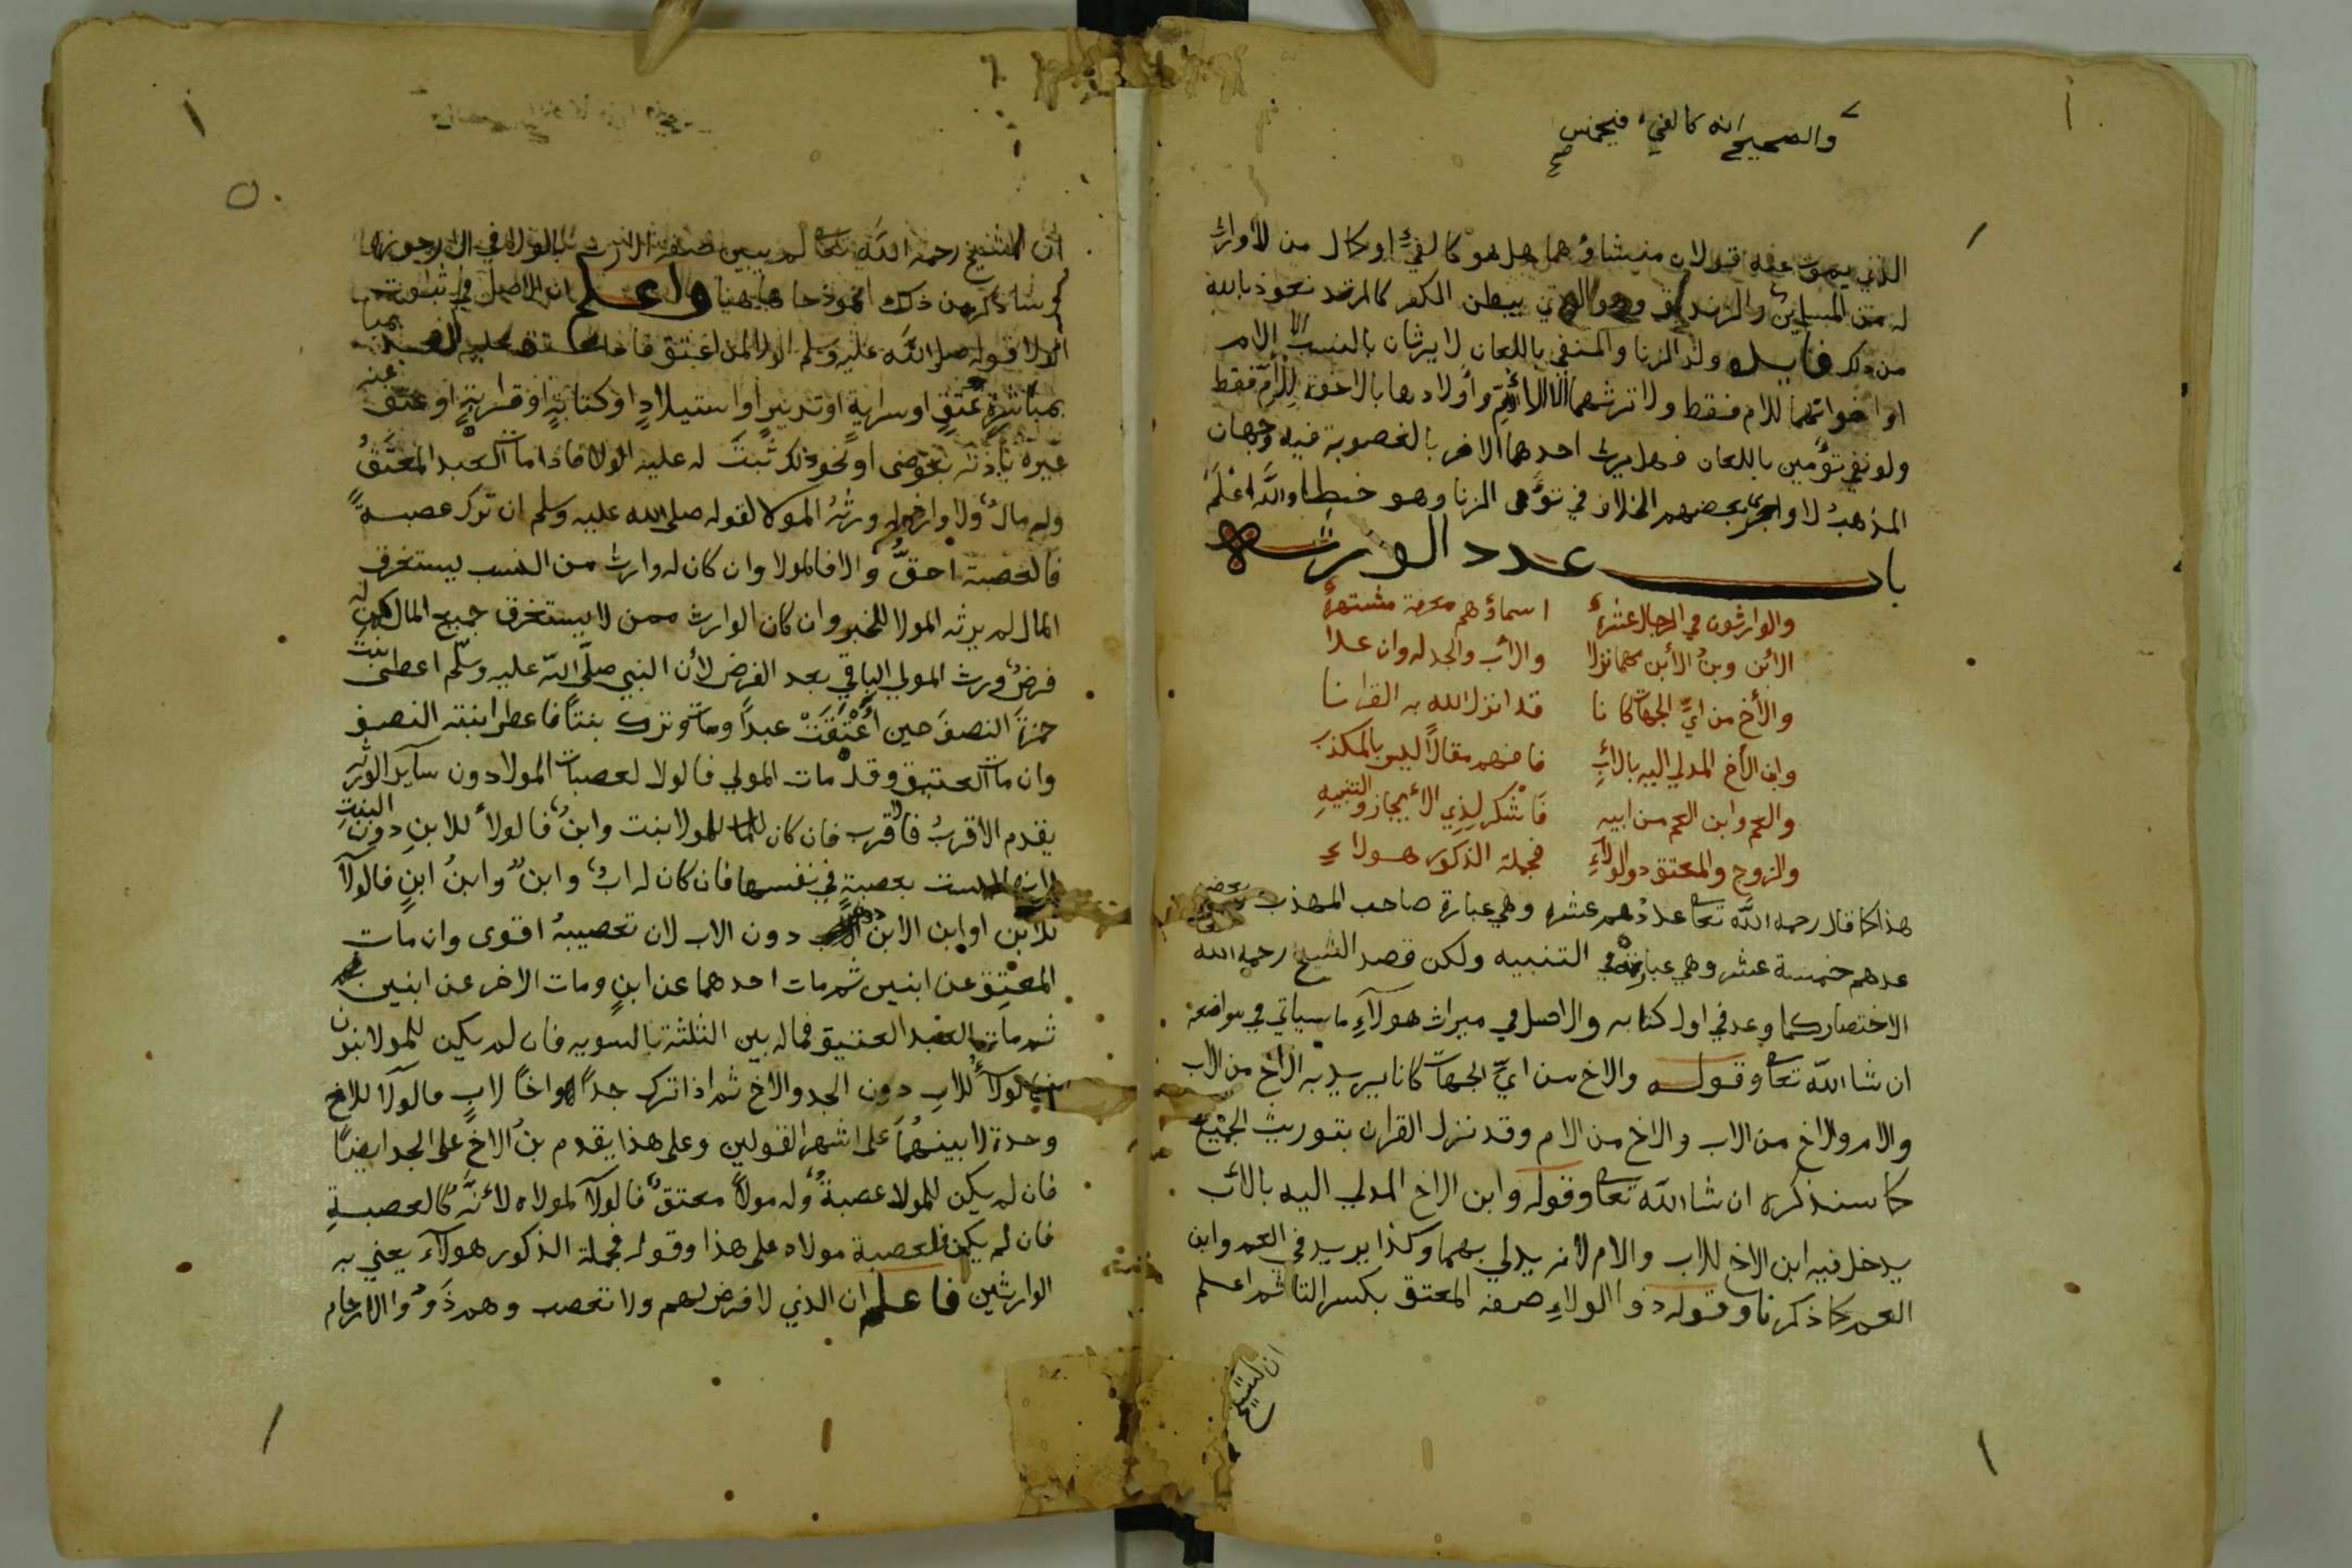 والصحيح انه كالفيء فيخمس صح
الذي يموت عنه قولان منشاؤهما هل هو كالفيء او كمال من لا وارث
له من المسلمين والزنديق وهو الذي يبطن الكفر كالمرتد نعوذ بالله
من ذلك فايده ولد الزنا والمنفي باللعان لا يرثان بالنسب الا الام
او اخواتهما للام فقط ولا ترثهما الا الام واولادها بالاخوة للام فقط
ولو نفي توءمين باللعان فهل يرث احدهما الاخر بالعصوبة فيه وجهان
المذهب لا واجرى بعضهم الخلاف في توءمى الزنا وهو خطا والله اعلم
باب عدد الورثه
والوارثون في الرجال عشرة اسماؤهم معرفة مشتهرة
الابن وبن الابن مهما نزلا والاب والجد له وان علا
والأخ من اي الجهات كانا قد انزل الله به القرانا
وابن الأخ المدلي اليه بالاب فافهم مقالا ليس بالمكذب
والعم وابن العم من ابيه فاشكر لذي الايجاز والتنبيه
والزوج والمعتق ذو الولاء فجملة الذكور هولاء
هذا كما قال رحمه الله تعالى عددهم عشره وهي عبارة صاحب المهذب وبعضهم
عدهم خمسة عشر وهي عبارته في التنبيه ولكن قصد الشيخ رحمه الله
الاختصار كما وعد في اول كتابه والاصل في ميراث هولاء ما سياتي في مواضعه
ان شا الله تعالى وقوله والاخ من اي الجهات كانا يريد به الاخ من الاب
والام والاخ من الاب والاخ من الام وقد نزل القران بتوريث الجميع
كما سنذكره ان شا الله تعالى وقوله وابن الاخ المدلي اليه بالاب
يدخل فيه ابن الاخ للاب والام لانه يدلي بهما وكذا يريد في العم وابن
العم كما ذكرنا وقوله ذو الولاء صفه المعتق بكسر التا ثم اعلم
ان الشيخ
ان الشيخ رحمه الله تعالى لم يبين صفة الارث بالولا في الارجوزة
وساذكر من ذلك انموذجا هاهنا واعلم ان الاصل في ثبوت
الولا قوله صلى الله عليه وسلم الولا لمن اعتق فاذا عتق عليه العبد
بمباشرة عتق او سراية او تدبير او استيلاد او كتابة او قرابة او عتق عنه
غيره باذنه بعوض او نحو ذلك ثبت له عليه الولا فاذا مات العبد المعتق
وله مال ولا وارث له ورثه المولا لقوله صلى الله عليه وسلم ان ترك عصبة
فالعصبة احق والا فالمولا وان كان له وارث من النسب يستغرق
المال لم يرثه المولا للخبر وان كان الوارث ممن لا يستغرق جميع المال كمن له
فرض ورث المولي الباقي بعد الفرض لأن النبي صلى الله عليه وسلم اعطى بنت
حمزة النصف حين أعتقت عبدا ومات وترك بنتا فاعطى ابنته النصف
وان مات العتيق وقد مات المولي فالولا لعصبات المولا دون ساير الورثه
يقدم الاقرب فالاقرب فان كان للمولا بنت وابن فالولأ للابن دون البنت
لانها ليست بعصبة في نفسها فان كان له اب وابن وابن ابن فالولآ
للابن او ابن الابن دون الاب لان تعصيبه اقوى وان مات
المعتق عن ابنين ثم مات احدهما عن ابن ومات الاخر عن ابنين
ثم مات العبد العتيق فماله بين الثلثة بالسويه فان لم يكن للمولا بنون
فالولآ للاب دون الجد والاخ ثم اذا ترك جدا واخا لاب فالولآ للاخ
وحده لا بينهما على اشهر القولين وعلى هذا يقدم بن الاخ على الجد ايضا
فان لم يكن للمولا عصبة وله مولا معتق فالولآ لمولاه لأنه كالعصبة
فان لم يكن فلعصبة مولاه على هذا وقوله فجملة الذكور هولآء يعني به
الوارثين فاعلم ان الذي لا فرض لهم ولا تعصب وهم ذوو الارحام